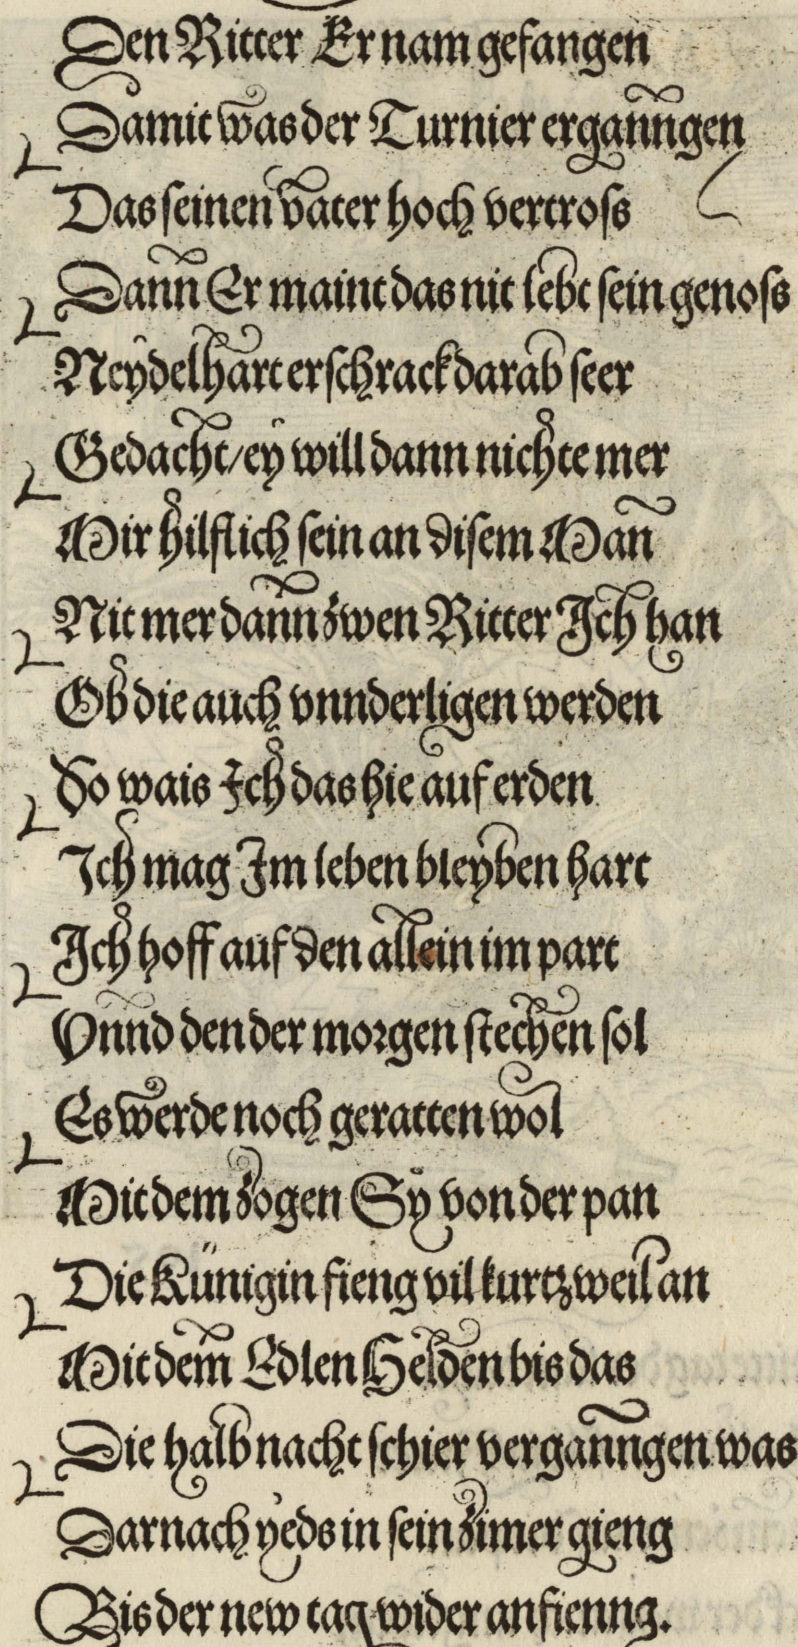 Den Ritter Er nam gefangen
Damit was der Turnier erganngen
Das seinen vater hoch vertross
Dann Er maint das nit lebt sein genoss
Neydelhart erschrack darab seer
Gedacht/ ey will dann nichte mer
Mir hilflich sein an disem Man
Nit mer dann zwen Ritter Ich han
Ob die auch vnnderligen werden
So wais Ich das hie auf erden
Ich mag Im leben bleyben hart
Ich hoff auf den allein im part
Vnnd den der morgen stechen sol
Es werde noch geratten wol
Mit dem zogen Sy von der pan
Die Künigin fieng vil kurtzweil an
Mit dem Edlen Helden bis das
Die halb nacht schier verganngen was
Darnach yeds in sein zimer gieng
Bis der new tag wider anfienng.